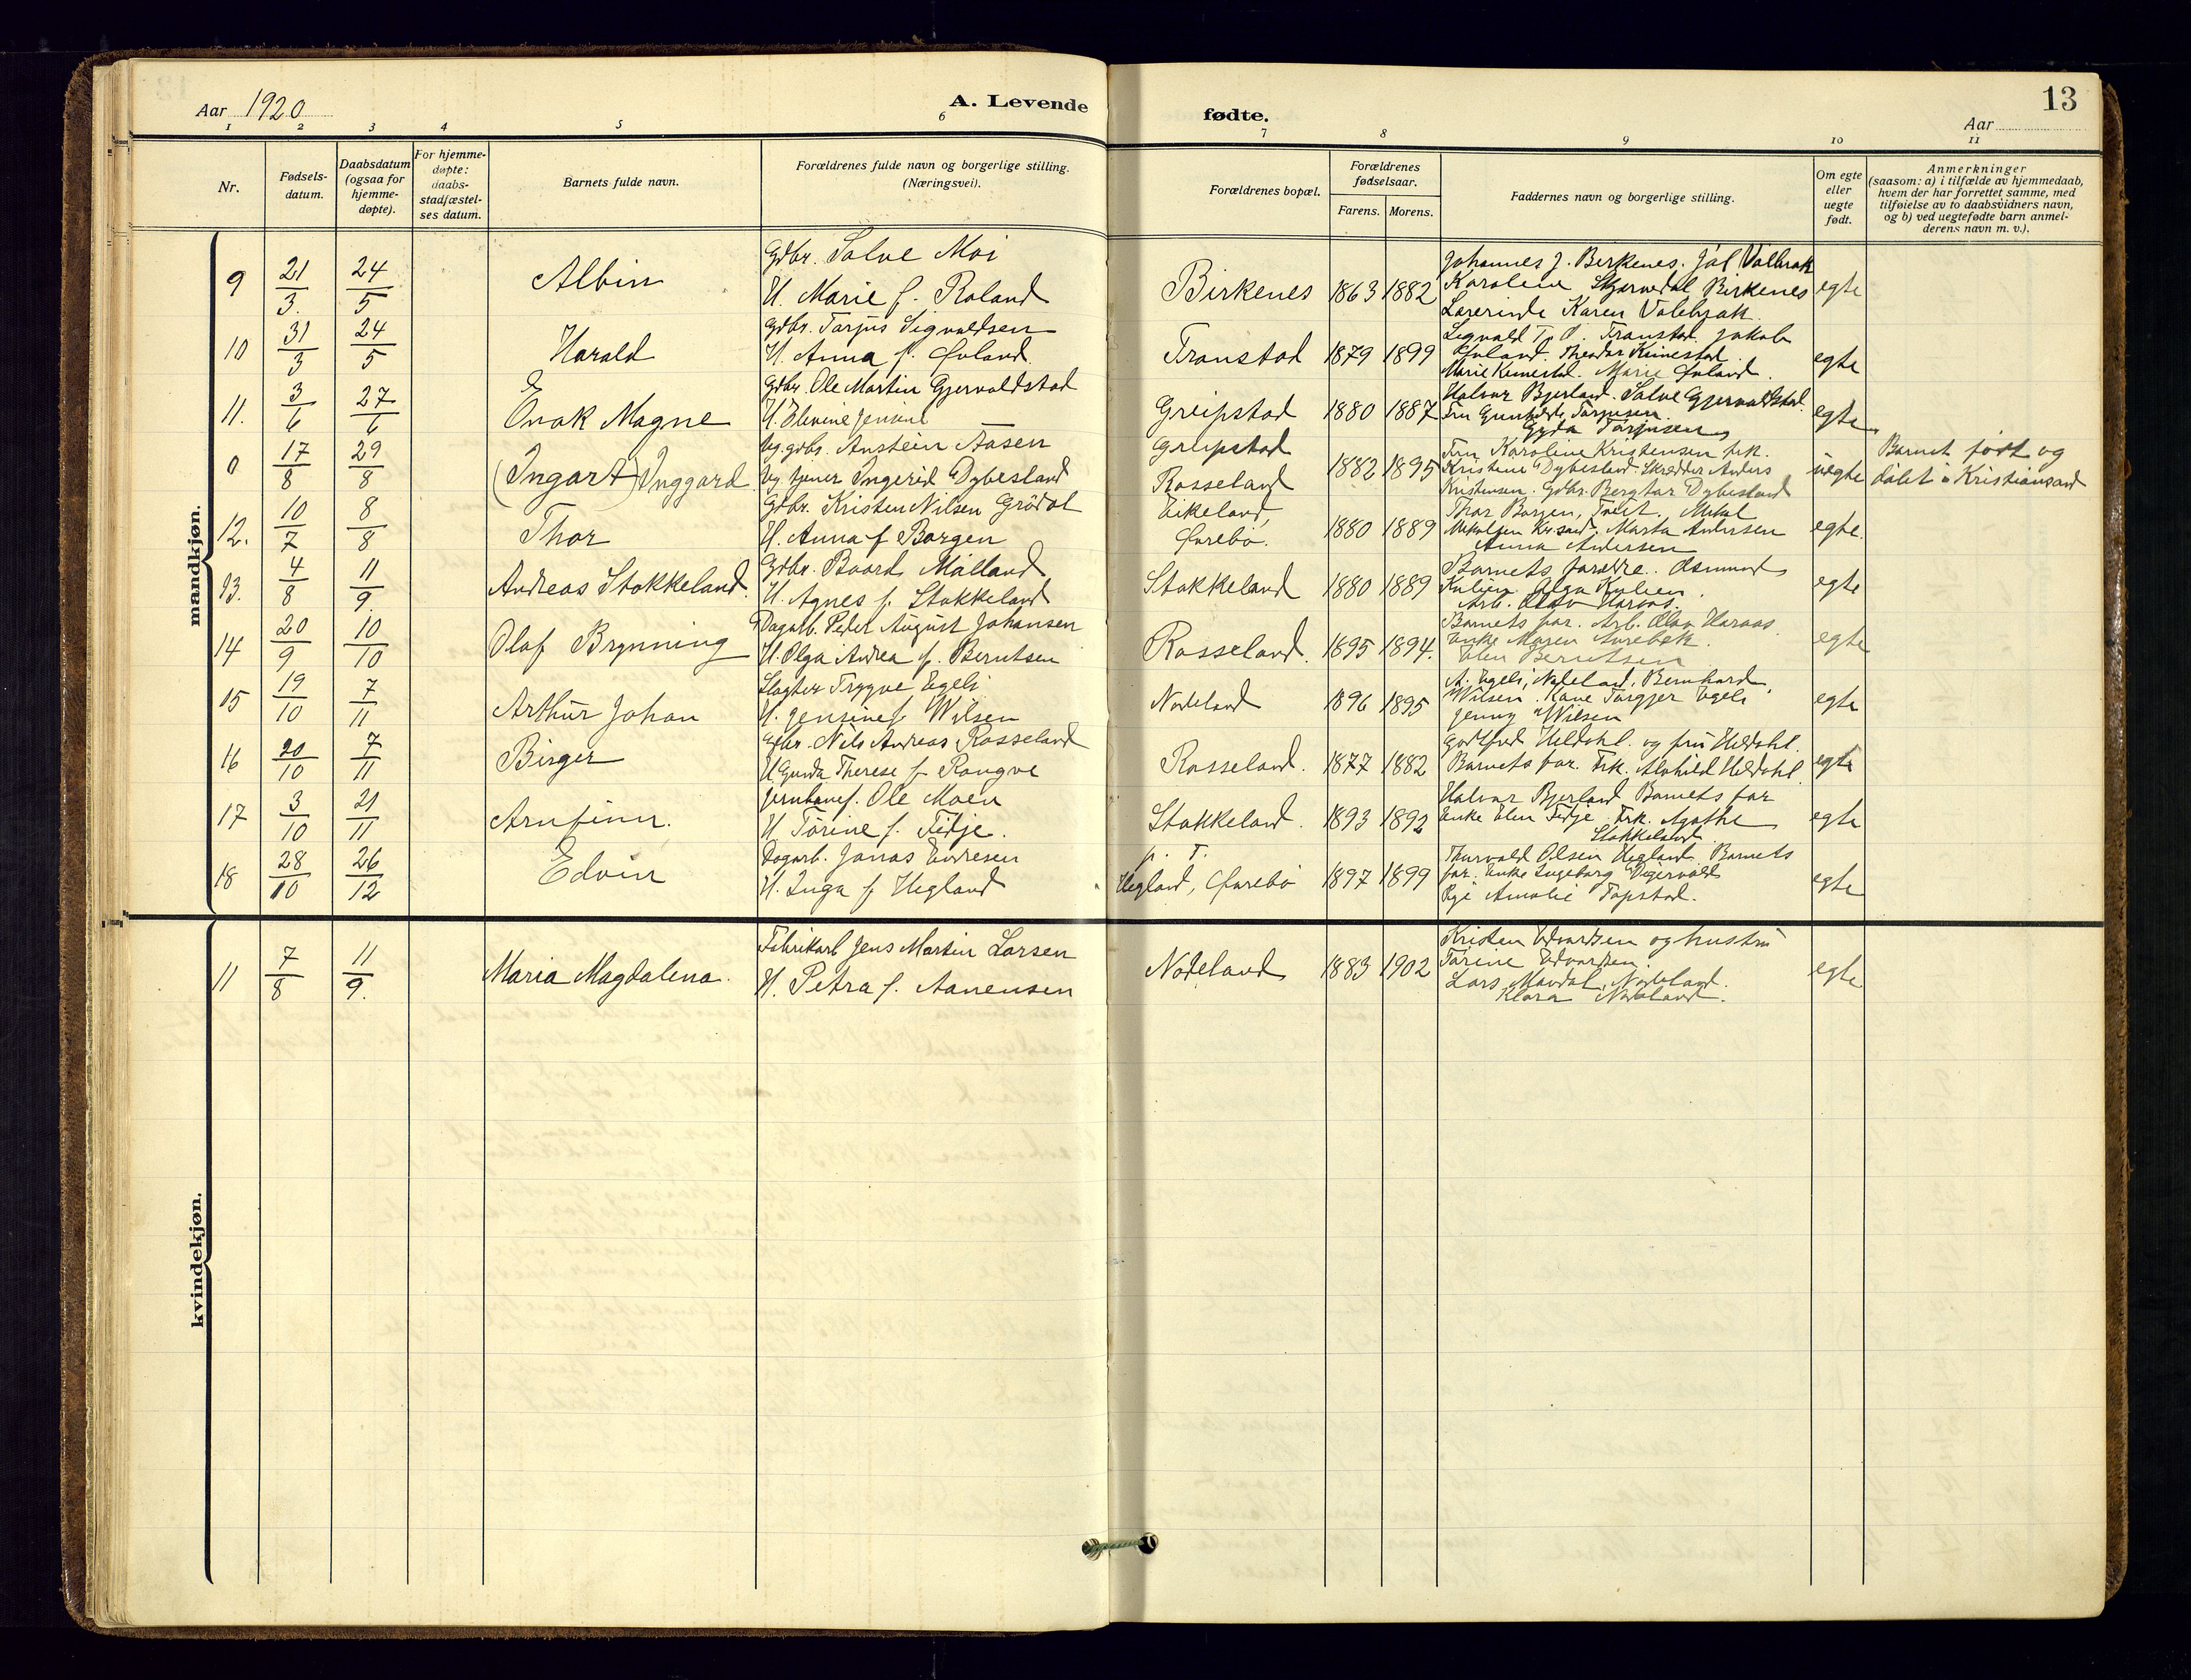 Aar 1920
A. Levende fødte.
13
Aar
1 2 3 4 5 6 7 8 9 10 11
Nr.
Fødsels-
datum.
Daabsdatum
(ogsaa for
hjemme-
døpte).
For hjemme-
døpte:
daabs-
stadfæstel-
ses datum.
Barnets fulde navn.
Forældrenes fulde navn og borgerlige stilling.
(Næringsvei).
Forældrenes bopæl.
Forældrenes
fødselsaar.
Farens. Morens.
Faddernes navn og borgerlige stilling.
Om egte
eller
uegte
født.
Anmerkninger
(saasom: a) i tilfælde av hjemmedaab,
hvem der har forrettet samme, med
tilføielse av to daabsvidners navn,
og b) ved uegtefødte barn anmel-
derens navn m. v.).
mandkjøn.
9 21/3. 24/5 Albin
Gdbr. Salve Moi
H. Marie f. Roland
Birkenes 1863 1882
Johannes J. Birkenes.
Karoline Birkenes
Lærerinde Karen
egte
10 31/3 24/5 Harald
Gdbr. Tarjus Sigvaldsen
H. Anna f. Øvland.
Transtad 1879 1899
Sigvald T. O. Transtad. Jakob
Øvland. Theodor Kimestad.
Marie Kimestad. Marie Øvland.
egte
11. 3/6 27/6 Enok Magne
Gdbr. Ole Martin Gjervoldstad
H. Elevine Jensine
Greipstad 1880 1887
Halvor Bjerland. Salve Gjervoldstad.
Fru Gunhilde Tarjusen.
Gyda Tarjusen
egte
0 17/8 29/8 (Ingart) Inggard
Ug. gdbr. Anstein Aasen
Ug. tjener Ingerid Dybesland
Greipstad
Rosseland
1882 1895
Fru Karoline Kristensen frk.
Kristine Dybesland. Skrædder Anders
Kristensen. Gdbr. Bergtor Dybesland
uegte
Barnet født og
døbt i Kristiansand
12. 10/7 8/8 Thor
Gdbr. Kristen Nilsen Grödal
H. Anna f Borgen
Eikeland,
Øvrebö.
1880 1889
Thor Borgen, Mikal
Marta Andersen
Anna Andersen
egte.
13. 4/8 11/9. Andreas Stokkeland.
Gdbr. Baard Målland
H. Agnes f. Stokkeland
Stokkeland 1880 1889
Barnets forældre. Asmund
Kulien. Olga Kulien.
Arb. Olav Haraas.
egte
14 20/9 10/10 Olaf Brynning
Dagarb. Peder August Johansen
H. Olga Andrea f. Berntsen
Rosseland. 1895 1894.
Barnets far. Arb. Olav Haraas.
Enke Maren Aurebæk.
Elen Berntsen
egte
15 19/10 7/11 Arthur Johan
Slagter Trygve Egeli
H. Jensine f. Wilsen
Nodeland 1896 1895
A. Egeli, Nodeland. Bernhard
Wilsen. Kone Torgjer Egeli
Jenny Wilsen
egte
16 20/10 7/11 Birger
Gdbr. Nils Andreas Rosseland
H Gunda Therese f Rongve
Rosseland. 1877 1882
Godtfred Heldahl. og fru Heldahl.
Barnets far. Frk. Alvhild Heldahl.
egte
17 3/10 21/11 Arnfinn.
Jernbanef. Ole Moen
H. Torine f. Fidje.
Stokkeland. 1893 1892
Halvor Bjerland Barnets far
Enke Elen Fidje. Frk. Agathe
Stokkeland
egte
18 28/10 26/12 Edvin
Dagarb. Jonas Endresen
H. Inga f Hegland
p. T.
Hegland, Øvrebö 1897 1899
Thorvald Olsen Hegland. Barnets
far. Enke Ingeborg
Pige Amalie Topstad.
egte
kvindekjøn.
11 7/8 11/9. Maria Magdalena.
Fabrikarb Jens Martin Larsen
H. Petra f. Aanensen
Nodeland 1883 1902
Kristen Edvardsen og hustru
Torine Edvardsen.
Lars Mandal, Nodeland.
Klara Nodeland.
egte